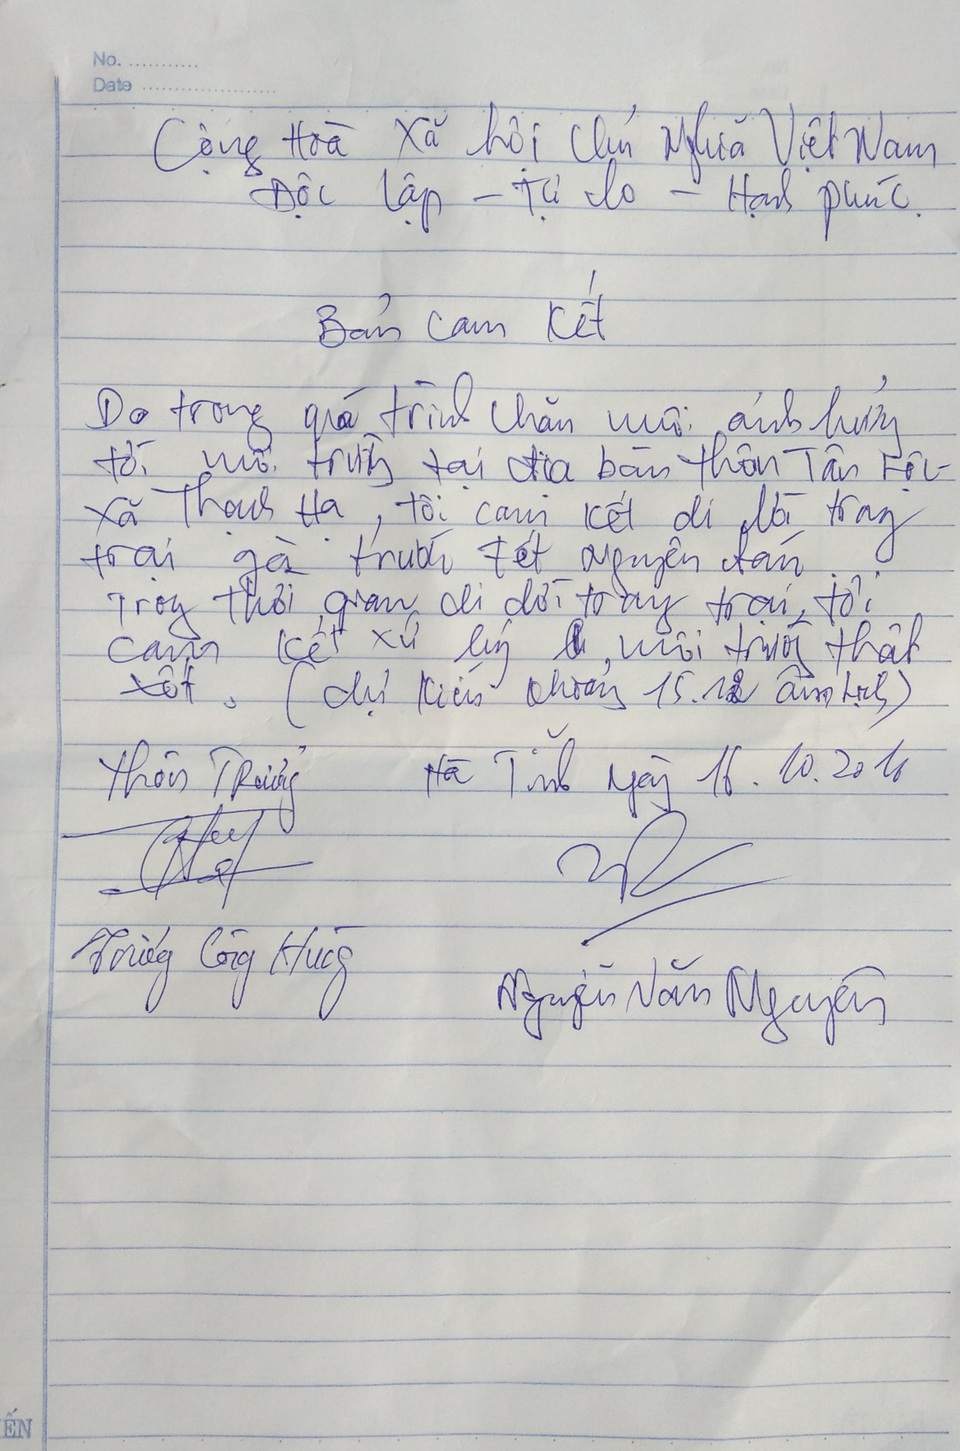 No. ...........
Date ......................
Cộng Hoà Xã hội Chủ Nghĩa Việt Nam
Độc lập - Tự do - Hạnh phúc.
Bản cam kết
Do trong quá trình chăn nuôi ảnh hưởng
tới môi trường tại địa bàn thôn Tân Lộc
xã Thạch Hạ, tôi cam kết di dời trang
trại gà trước tết nguyên đán
Trong thời gian di dời trang trại, tôi
cam kết xử lý môi trường thật
tốt. (dự kiến khoảng 15.12 âm lịch)
Thôn Trưởng
Hà Tĩnh ngày 16.10.2016
Trương Công Hùng
Nguyễn Văn Nguyên
ẾN